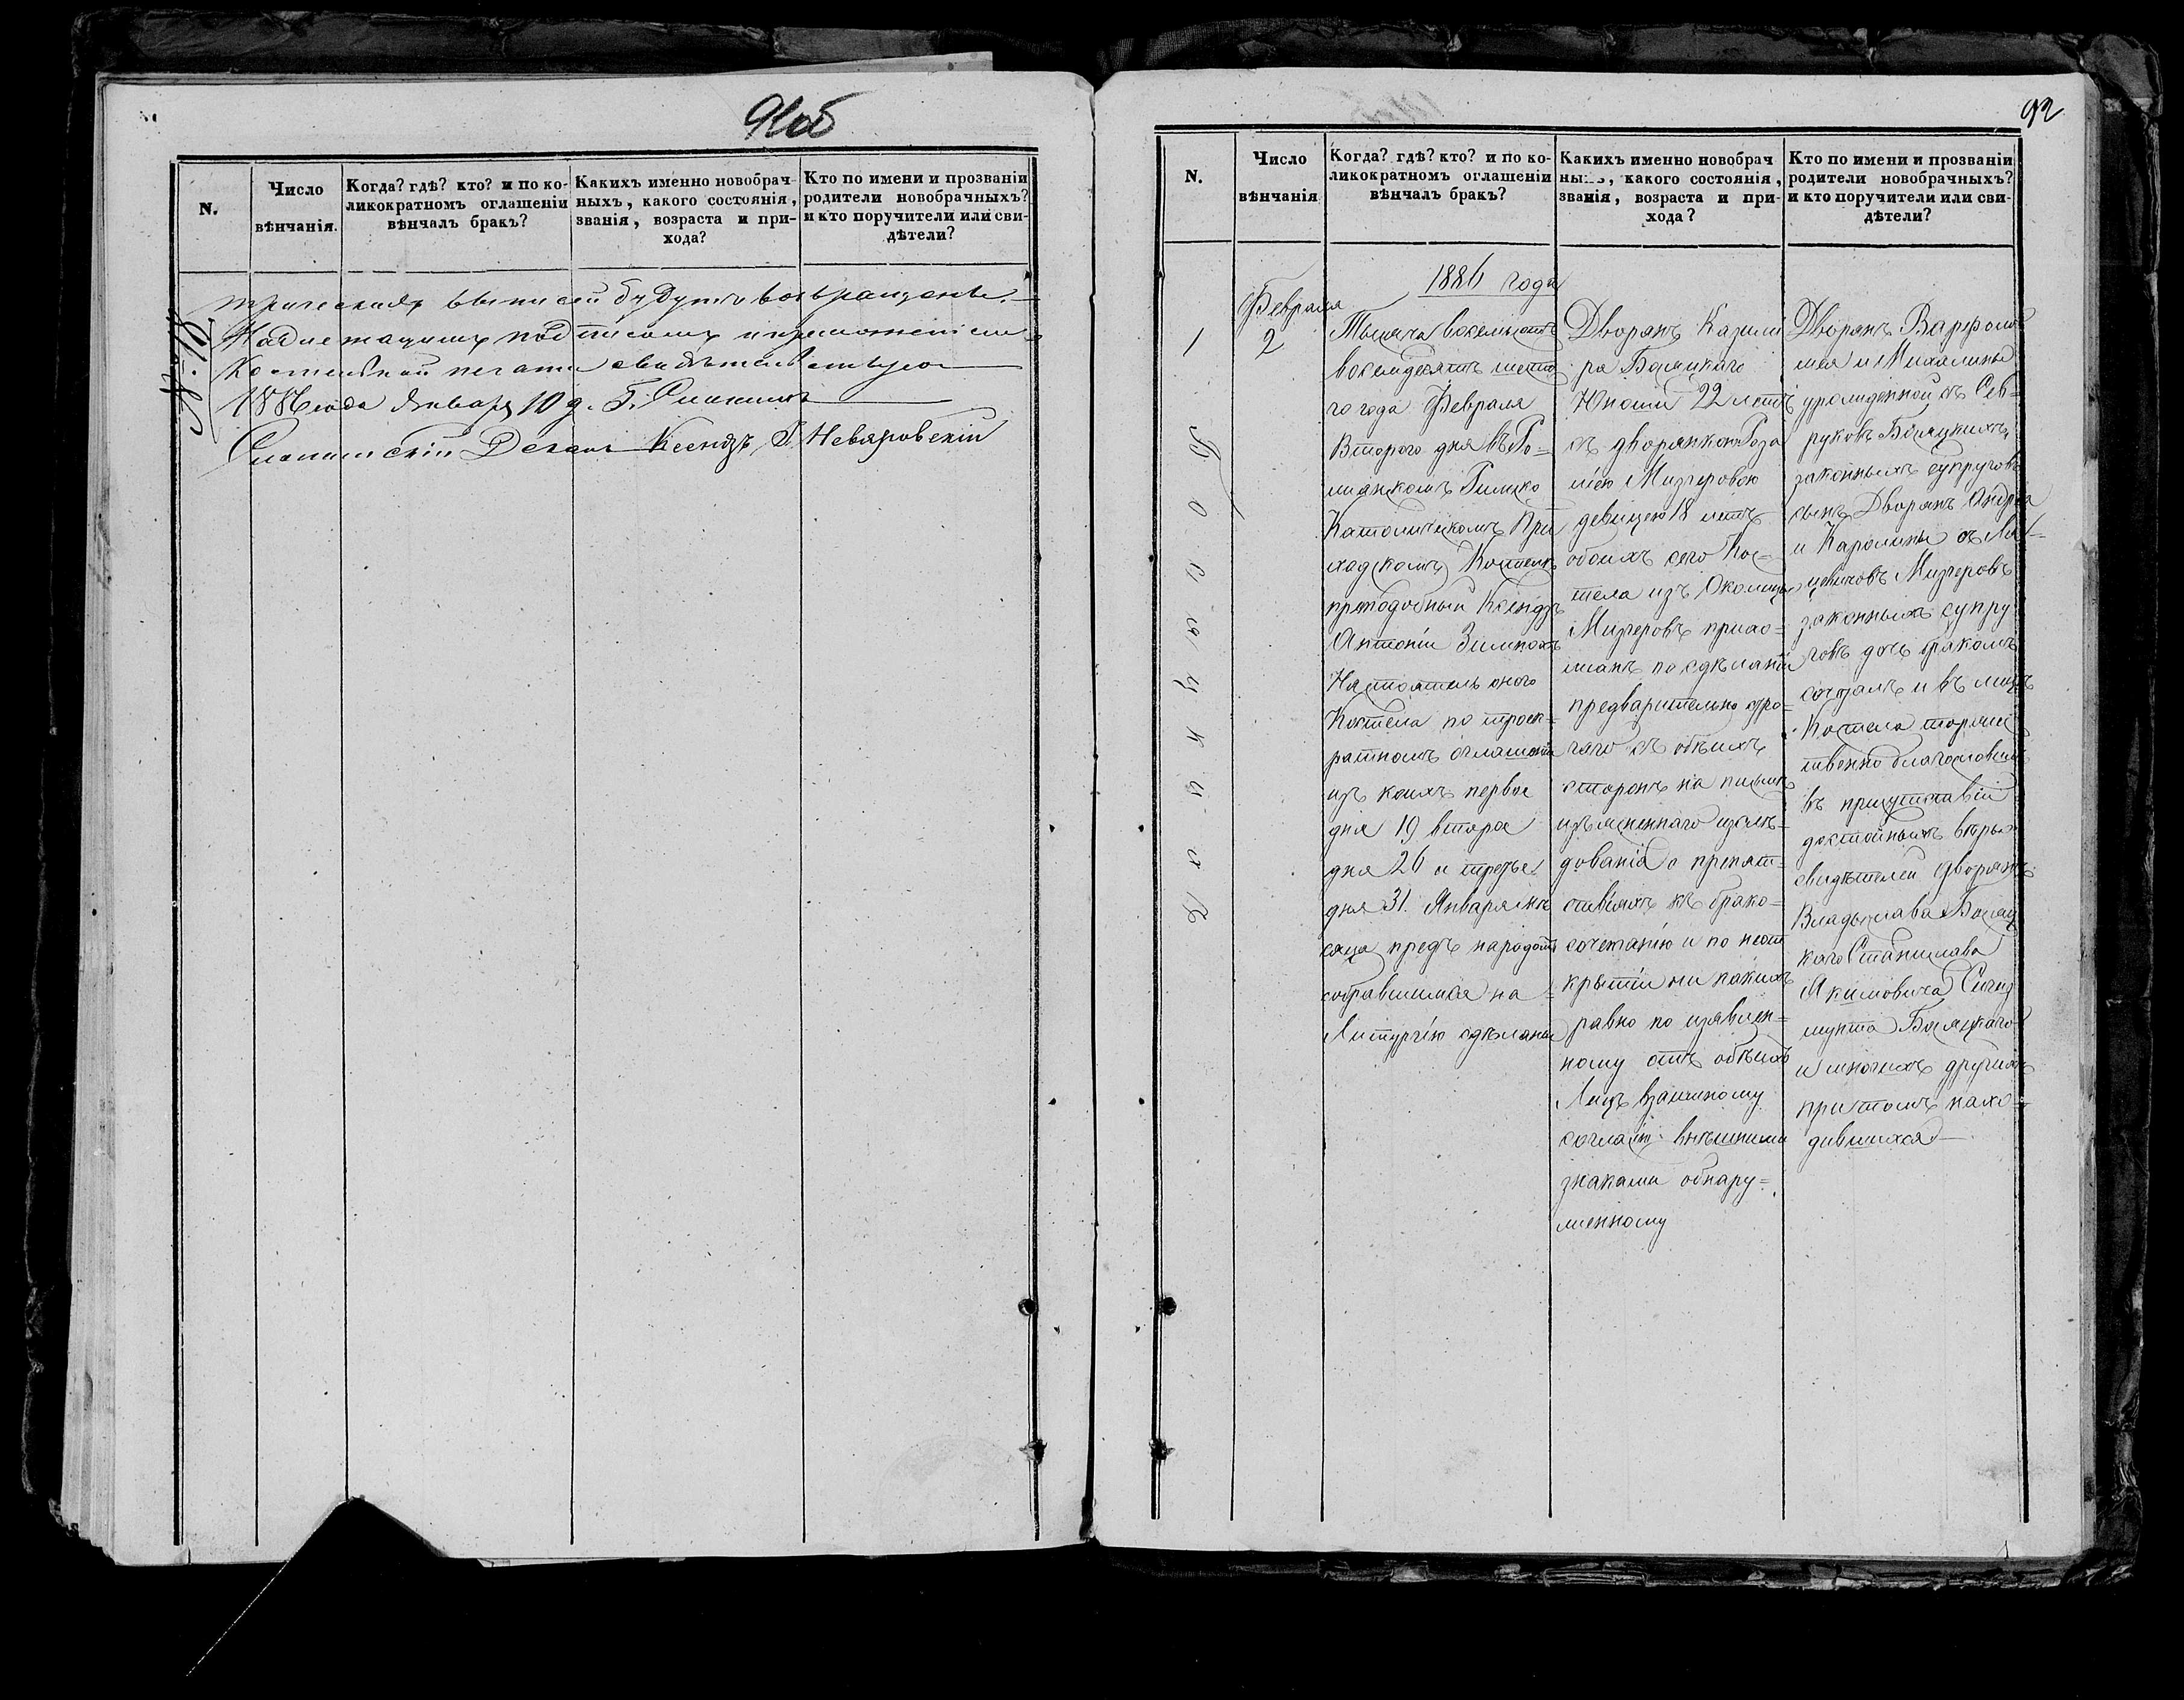 91об
N.
Число
вѣнчанія.
Когда? гдѣ? кто? и по ко-
ликократномъ оглашеніи
вѣнчалъ бракъ?
Какихъ именно новобрач-
ныхъ, какого состоянія,
званія, возраста и при-
хода?
Кто по имени и прозванію
родители новобрачныхъ?
и кто поручители или сви-
дѣтели?
трическихъ выписей будутъ возвращены.
Надлежащимъ подписомъ и приложеніемъ
Костельной печати свидѣтельствую
1886 года Января 10 д. Г. Слонимъ
Слонимскій Деканъ Ксендзъ Невяровскій
92
N.
Число
вѣнчанія
Когда? гдѣ? кто? и по ко-
ликократномъ оглашеніи
вѣнчалъ бракъ?
Какихъ именно новобрач
ныхъ, какого состоянія,
званія, возраста и при-
хода?
Кто по имени и прозваніи
родители новобрачныхъ?
и кто поручители или сви-
дѣтели?
1
Февраля
2
1886 года
Тысяча восемьсотъ
восемдесятъ шесто
го года Февраля
Второго дня въ
Римско
Католическомъ При
ходскомъ Костелѣ
преподобный Ксендзъ
Антоній
Настоятель оного
Костела по троек-
ратномъ оглашеніи
изъ коихъ первое
дня 19 второе
дня 26 и третье
дня 31. Января мѣ
сяца предъ народомъ
собравшимся на
Литургію сдѣланы
Дворянъ Казими
ра Бѣляцкаго
Юношу 22 летъ
съ дворянкою Роза
ліею Мизгеровою
девицею 18 летъ
обоихъ сего Кос-
тела изъ Околицы
Мизгеровъ прихо-
жанъ по сдѣланіи
предварительно стро-
гаго съ обѣихъ
сторонъ на письмѣ
изъясненнаго изслѣ-
дованія о препят-
ствіяхъ къ брако-
сочетанію и по неот
крытіи ни какихъ
равно по изявлен-
ному отъ обѣихъ
Лицъ взаимному
согласію внѣшними
знаками обнару-
женному
Дворянъ Варфоло
мея и Михалины
урожденной съ Сев-
руковъ Бѣляцкихъ
законныхъ супруговъ
сынъ Дворянъ Андрея
и Каролины съ
Мизгеровъ
законныхъ супру
говъ дочь бракомъ
сочеталъ и въ лицѣ
Костела торжес
твенно благословилъ
въ присутствіи
достойныхъ вѣры
свидѣтелей дворянъ
Владыслава Бѣляц
каго Станислава
Якимовича Сигиз
мунта Бѣляцкаго
и многихъ другихъ
при томъ нахо-
дившихся